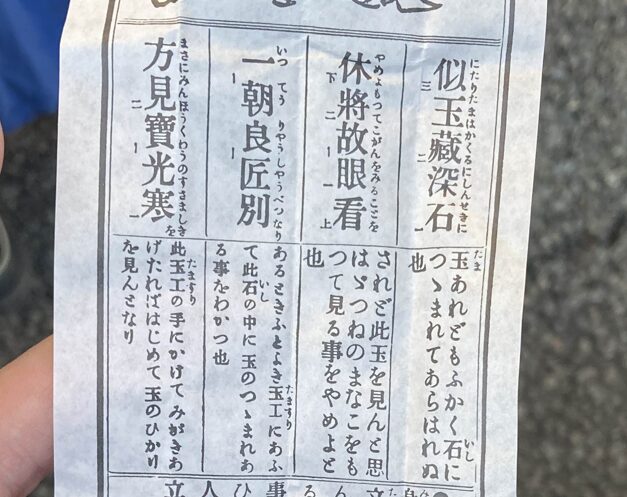 にたりたまはかくるにしんせきに
似玉藏深石
やめよもつてこがんをみることを
休將故眼看
いつてうりやうしやうべつなり
一朝良匠別
まさにみんほうくわうのすさましきを
方見寶光寒
玉あれどもふかく石に
つゝまれてあらはれぬ
也
されど此玉を見んと思
はゞつねのまなこをも
つて見る事をやめよと
也
あるときふとよき玉工にあふ
て此石の中に玉のつゝまれあ
る事をわかつ也
此玉工の手にかけてみがきあ
げたればはじめて玉のひかり
を見んとなり